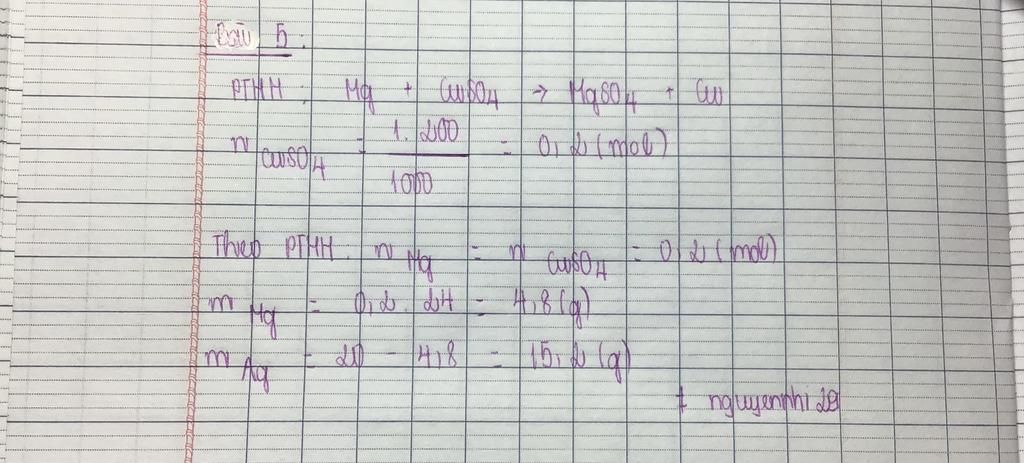 Bài 5:
PTHH: Mg + CuSO4 → MgSO4 + Cu
n CuSO4 = 1.200 / 1000 = 0,2 (mol)
Theo PTHH: n Mg = n CuSO4 = 0,2 (mol)
m Mg = 0,2. 24 = 4,8 (g)
m Ag = 20 - 4,8 = 15,2 (g)
# nguyenphi29